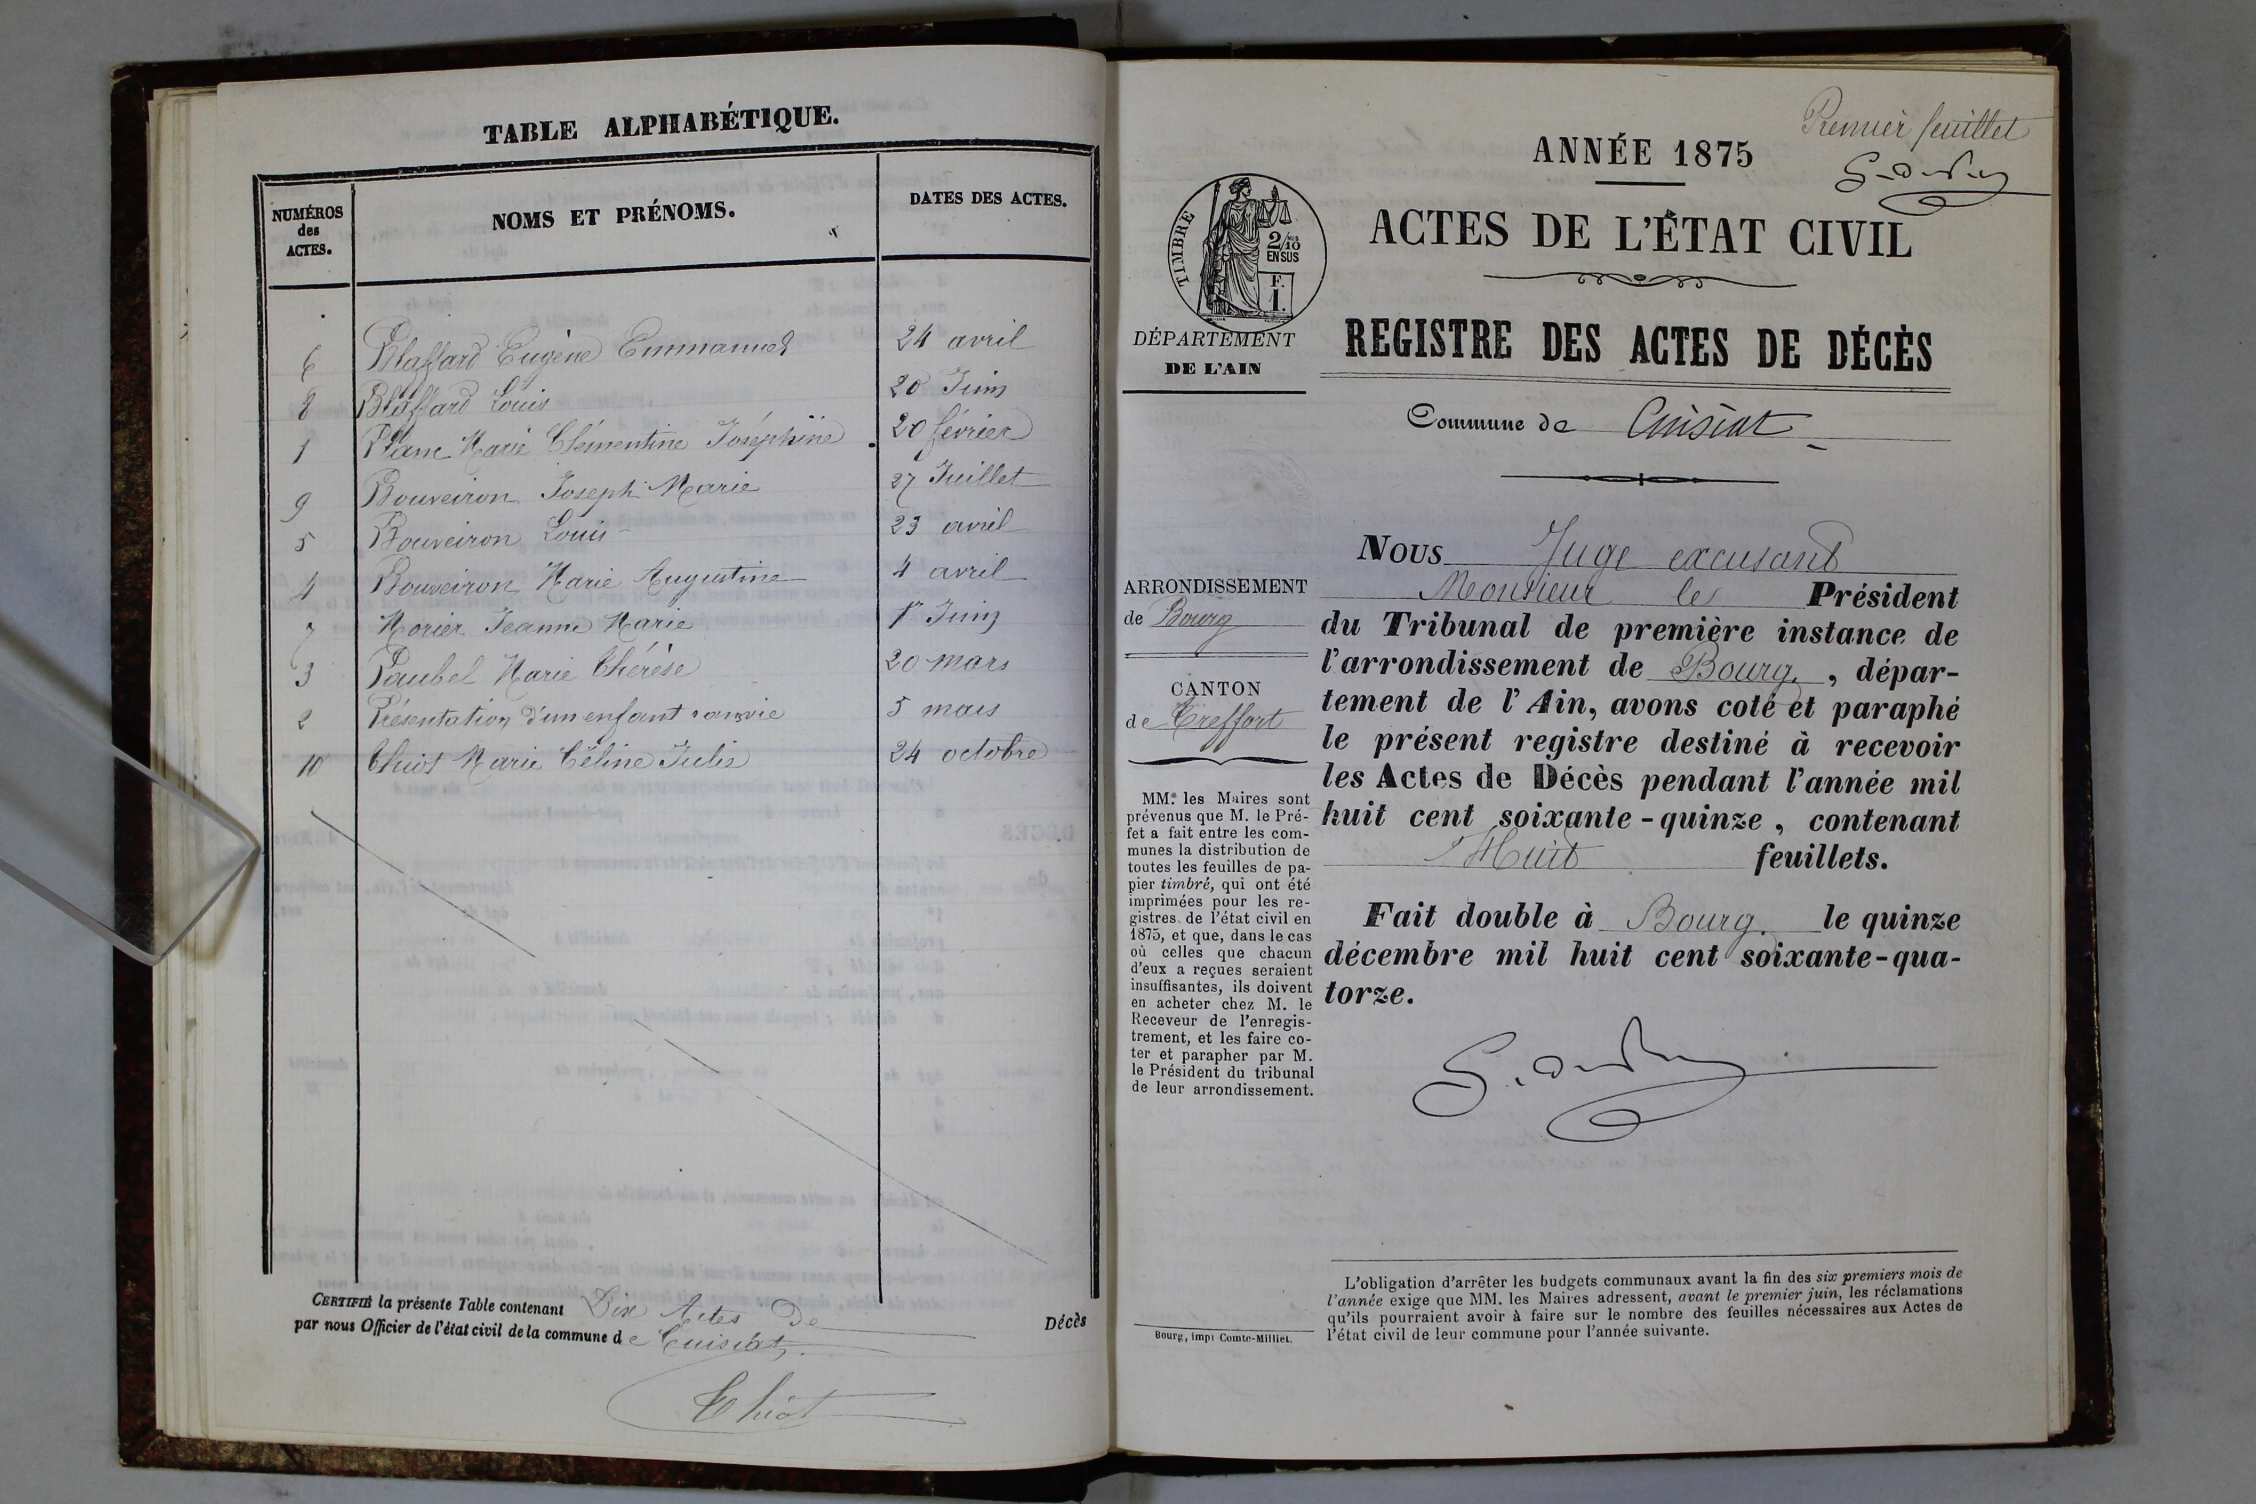 TABLE ALPHABÉTIQUE.
NUMÉROS
des
ACTES.
NOMS ET PRÉNOMS.
DATES DES ACTES.
6 Blaffard Eugène Emmanuel 24 avril
8 Blaffard Louis 20 Juin
1 Blanc Marie Clémentine Joséphine 20 février
9 Bouveiron Joseph Marie 27 Juillet
5 Bouveiron Louis 23 avril
4 Bouveiron Marie Augustine 4 avril
7 Morier Jeanne Marie 1er Juin
3 Paubel Marie Thérèse 20 mars
2 Présentation d'un enfant sans vie 5 mars
10 Thiot Marie Céline Julie 24 octobre
CERTIFIÉ la présente Table contenant Dix Actes de Décès
par nous Officier de l'état civil de la commune de Cuisiat.
Thiot
Premier feuillet
ANNÉE 1875
ACTES DE L'ÉTAT CIVIL
TIMBRE
2/10
EN SUS
F.
1.
DÉPARTEMENT
DE L'AIN
REGISTRE DES ACTES DE DÉCÈS
Commune de Cuisiat
ARRONDISSEMENT
de Bourg
CANTON
de Treffort
MM. les Maires sont
prévenus que M. le Pré-
fet a fait entre les com-
munes la distribution de
toutes les feuilles de pa-
pier timbré, qui ont été
imprimées pour les re-
gistres de l'état civil en
1875, et que, dans le cas
où celles que chacun
d'eux a reçues seraient
insuffisantes, ils doivent
en acheter chez M. le
Receveur de l'enregis-
trement, et les faire co-
ter et parapher par M.
le Président du tribunal
de leur arrondissement.
Nous Juge excusant
Monsieur le Président
du Tribunal de première instance de
l'arrondissement de Bourg, dépar-
tement de l'Ain, avons coté et paraphé
le présent registre destiné à recevoir
les Actes de Décès pendant l'année mil
huit cent soixante-quinze, contenant
Huit feuillets.
Fait double à Bourg. le quinze
décembre mil huit cent soixante-qua-
torze.
L'obligation d'arrêter les budgets communaux avant la fin des six premiers mois de
l'année exige que MM. les Maires adressent, avant le premier juin, les réclamations
qu'ils pourraient avoir à faire sur le nombre des feuilles nécessaires aux Actes de
l'état civil de leur commune pour l'année suivante.
Bourg, impr Comte-Milliet.